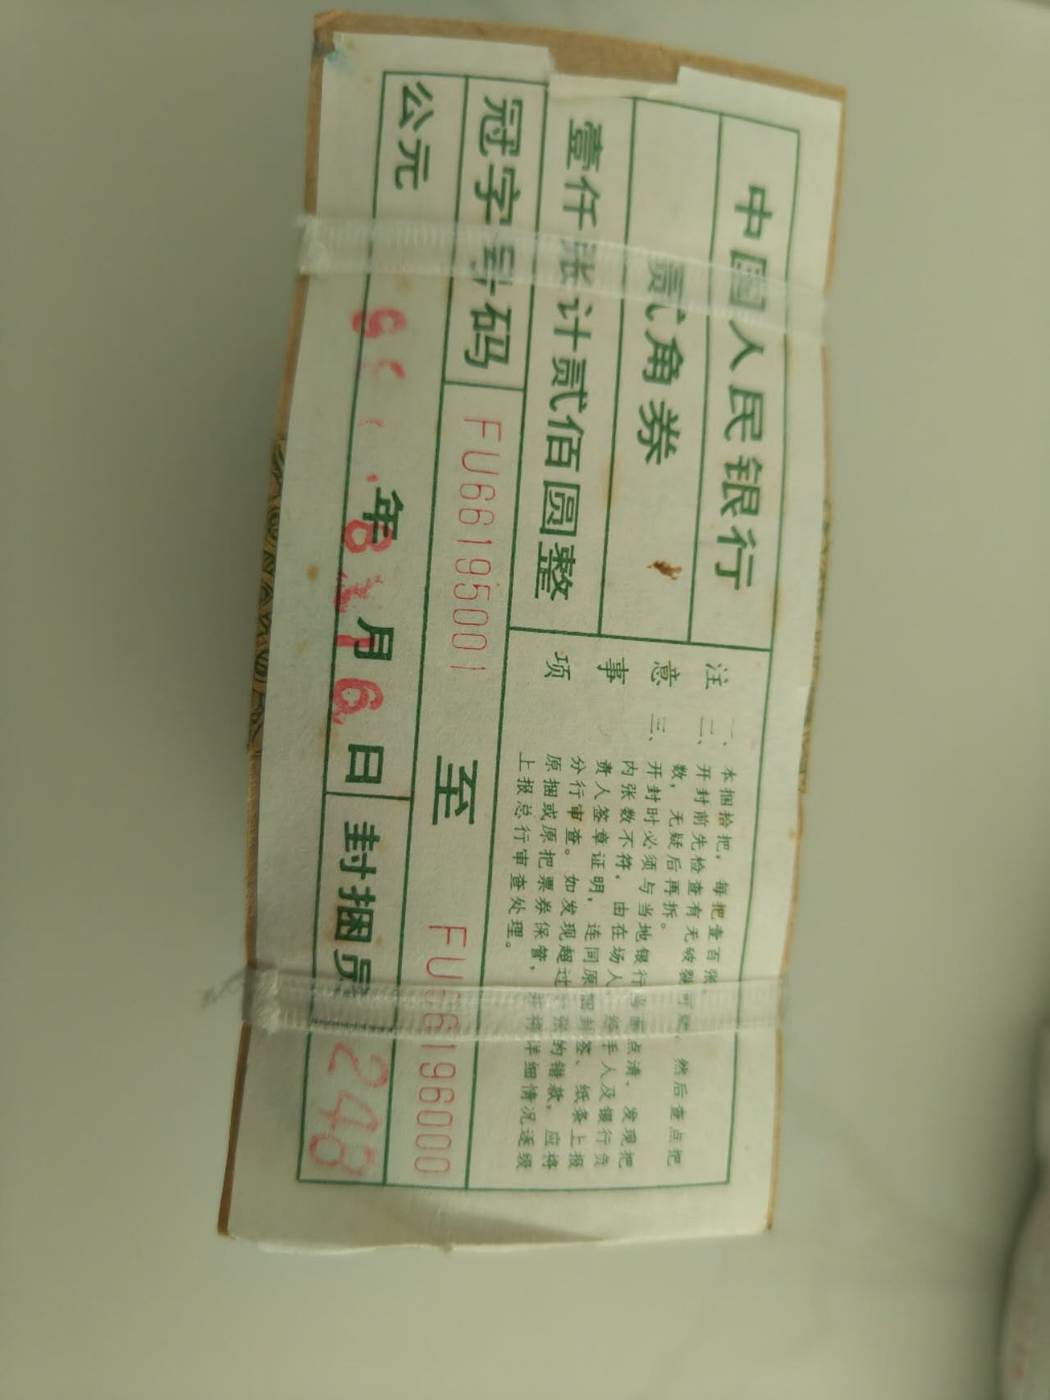 中国人民银行
贰角券
壹仟张计贰佰圆整
注意事项
一、本捆拾把，每把壹百张
二、开封前先检查有无破裂可疑、然后查点把
数，无疑后再拆。
三、开封时必须与当地银行当面点清、发现把
内张数不符，由在场人、经手人及银行负
责人签章证明，连同原捆封签、纸条上报
分行审查。如发现超过 张的错款，应将
原捆或原把票券保管，并将详细情况逐级
上报总行审查处理。
冠字号码 FU66195001 至 FU66196000
公元 年 8 月 6 日 封捆员 248